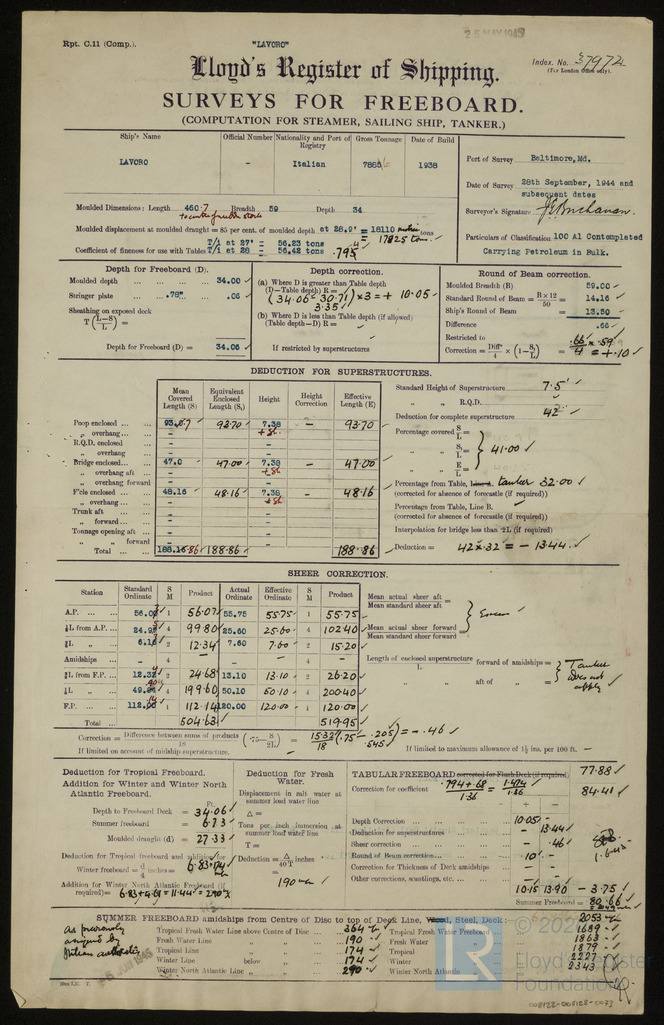 Rpt. C.11 (Comp.).
"LAVORO"
25 MAY 1945
Lloyd's Register of Shipping.
Index. No. 37972
(For London Office only).
SURVEYS FOR FREEBOARD.
(COMPUTATION FOR STEAMER, SAILING SHIP, TANKER.)
Ship's Name Official Number Nationality and Port of Registry Gross Tonnage Date of Build
LAVORO - Italian 1938
Port of Survey Baltimore, Md.
Date of Survey 28th September, 1944 and subsequent dates
Surveyor's Signature J. E. Buchanan.
Particulars of Classification 100 A1 Contemplated
Carrying Petroleum in Bulk.
Moulded Dimensions: Length 460.7 Breadth 59 Depth 34
Moulded displacement at moulded draught = 85 per cent. of moulded depth at 28.9' = 18110 tons
= 17825 tons.
Coefficient of fineness for use with Tables T/1 at 27' = 56.23 tons
T/1 at 28 = 56.42 tons .794
Depth for Freeboard (D).
Moulded depth 34.00
Stringer plate .78" .06
Sheathing on exposed deck
T (L-S/L) =
Depth for Freeboard (D) = 34.06
Depth correction.
(a) Where D is greater than Table depth
(D-Table depth) R =
(34.06 - 30.71) × 3 = + 10.05
3.35
(b) Where D is less than Table depth (if allowed)
(Table depth-D) R =
If restricted by superstructures
Round of Beam correction.
Moulded Breadth (B) 59.00
Standard Round of Beam = B×12/50 = 14.16
Ship's Round of Beam = 13.50
Difference .66
Restricted to
Correction = Diff/4 × (1 - S1/L) = .66/4 × .59 = +.10
DEDUCTION FOR SUPERSTRUCTURES.
Mean Covered Length (S) Equivalent Enclosed Length (S1) Height Height Correction Effective Length (E)
Poop enclosed 93.70 93.70 7.38 - 93.70
" overhang -
R.Q.D. enclosed -
" overhang -
Bridge enclosed 47.0 47.00 7.38 - 47.00
" overhang aft -
" overhang forward -
F'cle enclosed 48.16 48.16 7.38 - 48.16
" overhang -
Trunk aft -
" forward -
Tonnage opening aft -
" " forward -
Total 188.86 188.86 188.86
Standard Height of Superstructure 7.5'
" " R.Q.D.
Deduction for complete superstructure 42"
Percentage covered S/L =
" " S1/L = 41.00
" " E/L =
Percentage from Table, Line A. tanker 32.00
(corrected for absence of forecastle (if required))
Percentage from Table, Line B.
(corrected for absence of forecastle (if required))
Interpolation for bridge less than .2L (if required)
Deduction = 42 × .32 = - 13.44
SHEER CORRECTION.
Station Standard Ordinate S M Product Actual Ordinate Effective Ordinate S M Product
A.P. 56.07 1 56.07 55.75 55.75 1 55.75
⅙L from A.P. 24.95 4 99.80 25.60 25.60 4 102.40
⅓L " 2 12.34 7.60 7.60 2 15.20
Amidships - 4 - - - 4 -
⅓L from F.P. 12.34 2 24.68 13.10 13.10 2 26.20
⅙L " 49.90 4 199.60 50.10 50.10 4 200.40
F.P. 112.14 1 112.14 120.00 120.00 1 120.00
Total 504.63 519.95
Mean actual sheer aft / Mean standard sheer aft =
Mean actual sheer forward / Mean standard sheer forward =
Excess
Length of enclosed superstructure / L forward of amidships =
" " aft of " =
Tanker does not apply
Correction = Difference between sums of products / 18 (.75 - S/2L) = 15.32/18 (.75 - .205) = - .46
.545
If limited on account of midship superstructure.
If limited to maximum allowance of 1½ ins. per 100 ft. -
Deduction for Tropical Freeboard.
Addition for Winter and Winter North Atlantic Freeboard.
Ft.
Depth to Freeboard Deck = 34.06
Summer freeboard = 6.73
Moulded draught (d) = 27.33
Deduction for Tropical freeboard and addition for
Winter freeboard = d/4 inches = 6.83 = 174
Addition for Winter North Atlantic Freeboard (if required) = 6.83 + 4.61 = 11.44 = 290
Deduction for Fresh Water.
Displacement in salt water at summer load water line
Δ =
Tons per inch immersion at summer load water line
T =
Deduction = Δ/40T inches
= 190
TABULAR FREEBOARD corrected for Flush Deck (if required) 77.88
Correction for coefficient .794 + .68 / 1.36 = 1.474/1.36 84.41
+ -
Depth Correction 10.05
Deduction for superstructures 13.44
Sheer correction .46
Round of Beam correction .10
Correction for Thickness of Deck amidships -
Other corrections, scantlings, etc. -
10.15 13.90 - 3.75
Summer Freeboard = 80.66
SUMMER FREEBOARD amidships from Centre of Disc to top of Deck Line, Wood, Steel, Deck: 2053
As previously assigned by Italian authorities
Tropical Fresh Water Line above Centre of Disc 364 Tropical Fresh Water Freeboard 1689
Fresh Water Line " " 190 Fresh Water " 1863
Tropical Line " " 174 Tropical " 1879
Winter Line below " 174 Winter " 2227
Winter North Atlantic Line " " 290 Winter North Atlantic " 2343
© 20
Lloyd's Register
Foundation
LR
008122-008128-0033